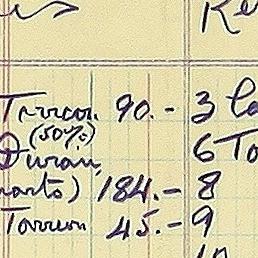 Torreon 90.- 3
(50%)
Duran 6 To
uarto) 184.- 8
Torreon 45.- 9
10